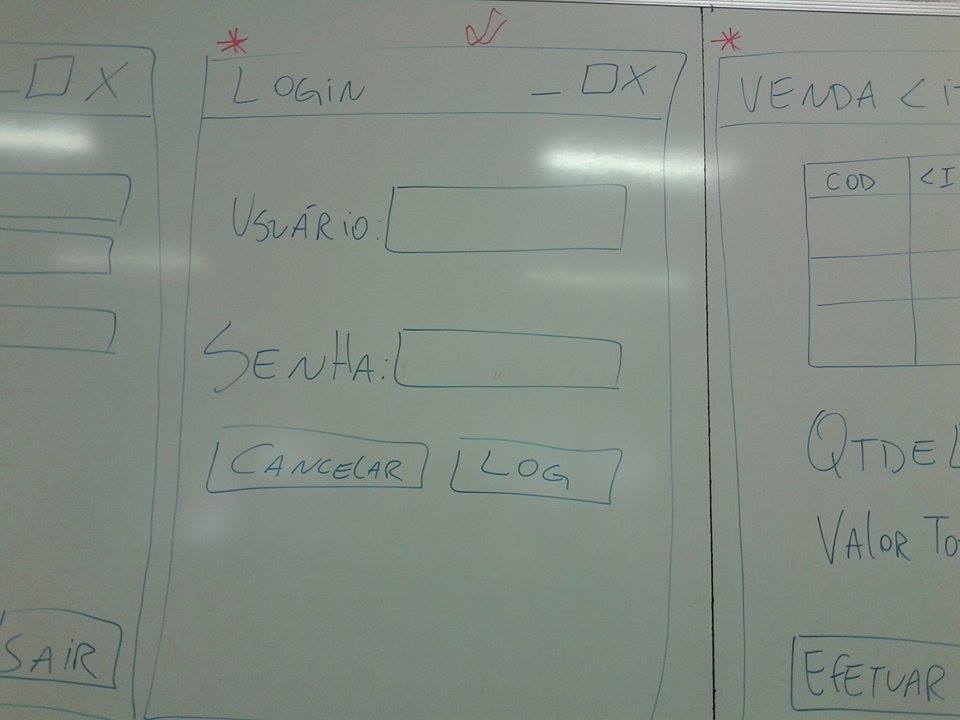 X
SAIR
LOGIN _ X
USUÁRIO:
SENHA:
CANCELAR
LOG
VENDA
COD
QTDE
VALOR
EFETUAR